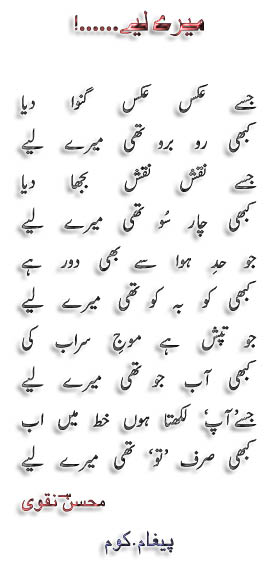 میرے لیے......!
جسے عکس عکس گنوا دیا
کبھی رو برو تھی میرے لیے
جسے نقش نقش بجھا دیا
کبھی چار سُو تھی میرے لیے
جو حدِ ہوا سے بھی دور ہے
کبھی کو بہ کو تھی میرے لیے
جو تپش ہے موجِ سراب کی
کبھی آب جو تھی میرے لیے
جسے ’آپ‘ لکھتا ہوں خط میں اب
کبھی صرف ’تو‘ تھی میرے لیے
محسن نقوی
پیغام.کوم